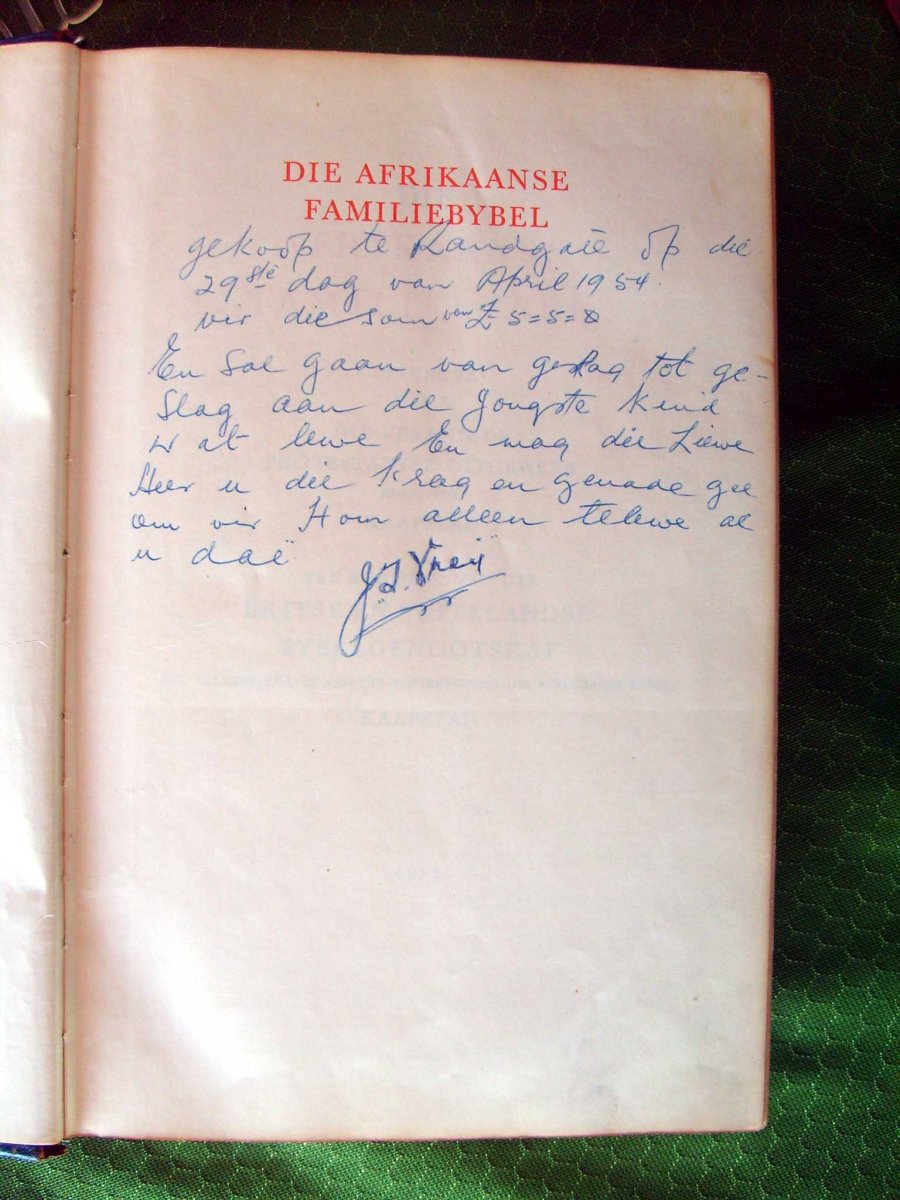 DIE AFRIKAANSE
FAMILIEBYBEL
gekoop te Randgate op die
29ste dag van April 1954.
vir die som van £ 5=5=0
En Sal gaan van geslag tot ge-
slag aan die Jongste Kind
wat lewe En mag die Liewe
Heer u die Krag en genade gee
om vir Hom alleen telewe al
u daë
KAAPSTAD